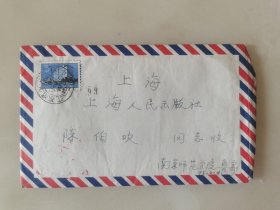 上海
上海人民出版社
陈伯吹 同志收
南京师范学院